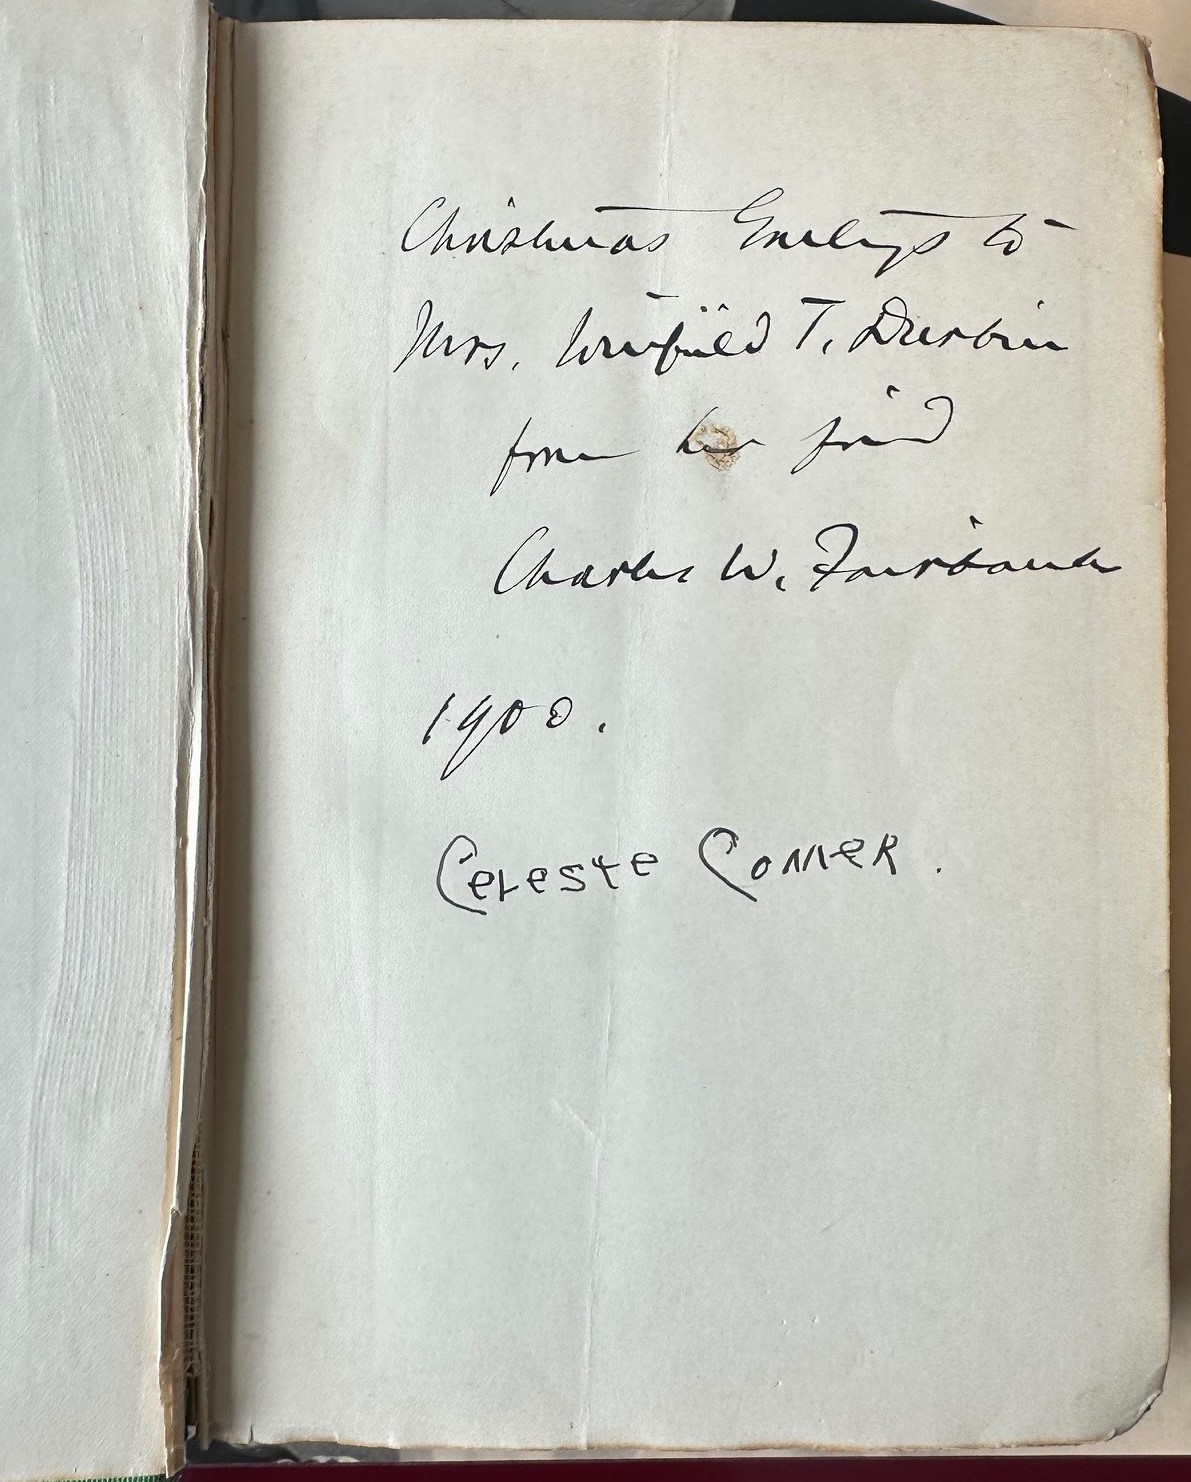 Christmas Greetings to
Mrs. Winfield T. Durbin
from her friend
Charles W. Fairbanks
1900.
Celeste Conner.